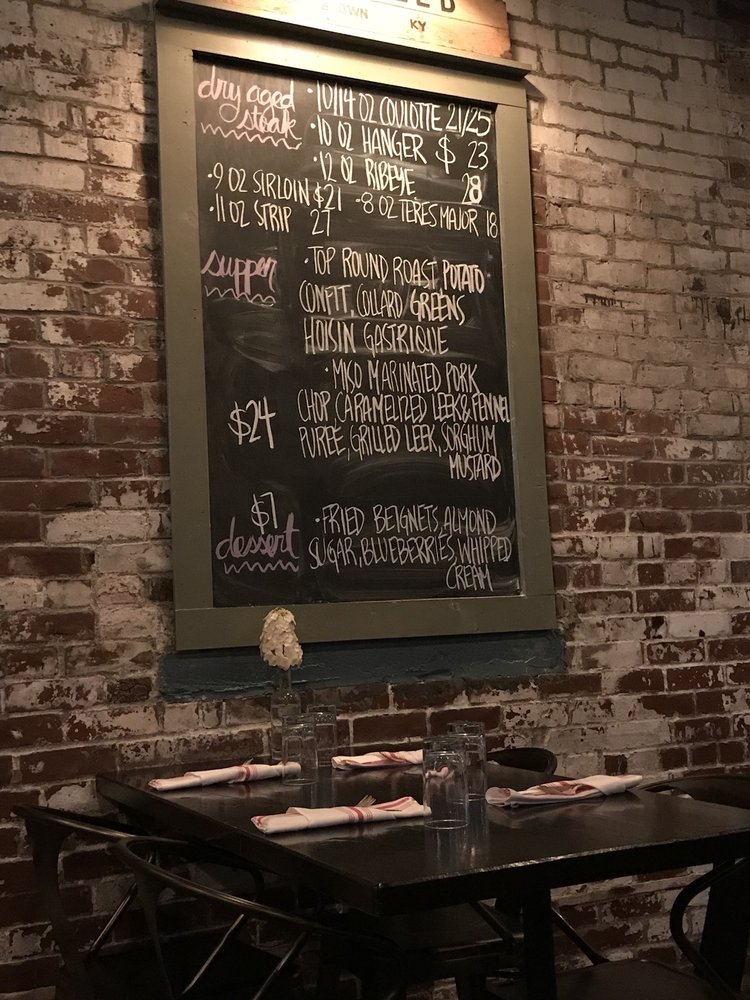 OWN KY
dry aged
steak
·10/14 OZ COULOTTE 21/25
·10 OZ HANGER $ 23
·12 OZ RIBEYE 28
·9 OZ SIRLOIN $21 -8 OZ TERES MAJOR 18
·11 OZ STRIP 27
supper
·TOP ROUND ROAST, POTATO
CONFIT, COLLARD GREENS
HOISIN GASTRIQUE
·MISO MARINATED PORK
CHOP, CARAMELIZED LEEK & FENNEL
PUREE, GRILLED LEEK, SORGHUM
MUSTARD
$24
$7
dessert
·FRIED BEIGNETS, ALMOND
SUGAR, BLUEBERRIES, WHIPPED
CREAM